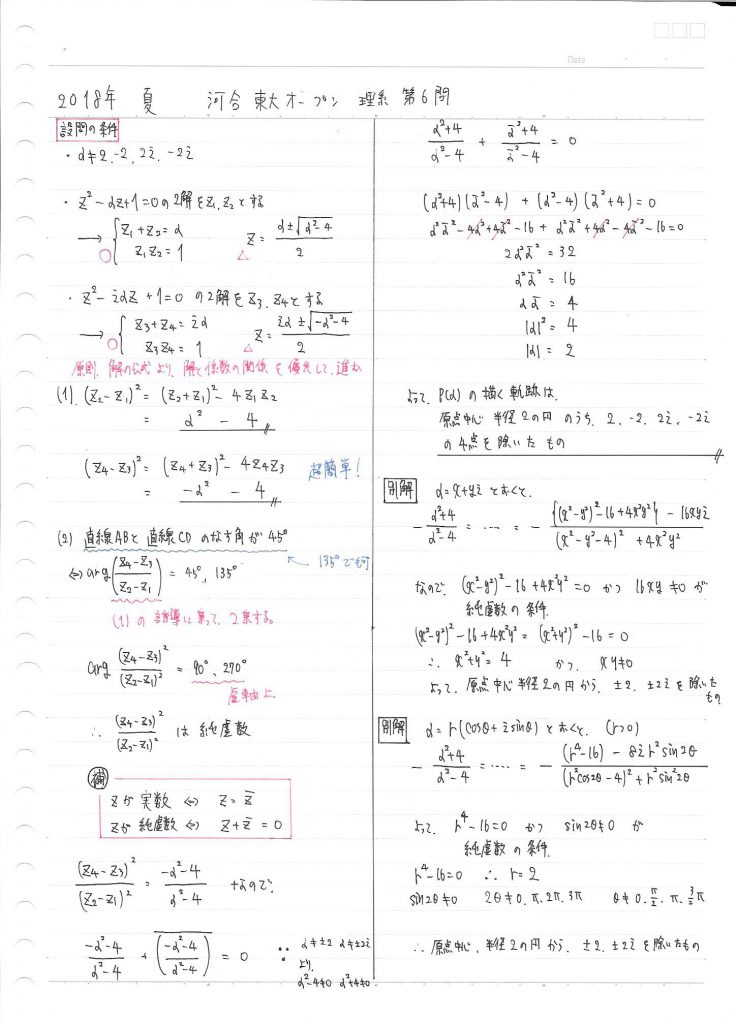 Date
2018年 夏 河合 東大オープン 理系 第6問
設問の条件
・α≠2, -2, 2i, -2i
・z²-αz+1=0の2解をz₁, z₂とする
→ { z₁+z₂=α
z₁z₂=1
z = (α±√(α²-4))/2
・z²-iαz+1=0の2解をz₃, z₄とする
→ { z₃+z₄=iα
z₃z₄=1
z = (iα±√(-α²-4))/2
原則、解の公式より、解と係数の関係を優先して、進む
(1). (z₂-z₁)² = (z₂+z₁)²-4z₁z₂
= α²-4
(z₄-z₃)² = (z₄+z₃)²-4z₄z₃
= -α²-4
超簡単!
(2) 直線ABと直線CDのなす角が45°
← 135°でも可
⇔ arg((z₄-z₃)/(z₂-z₁)) = 45°, 135°
(1)の誘導に乗って、2乗する。
arg (z₄-z₃)²/(z₂-z₁)² = 90°, 270°
虚軸上
∴ (z₄-z₃)²/(z₂-z₁)² は純虚数
補
zが実数 ⇔ z=z̄
zが純虚数 ⇔ z+z̄=0
(z₄-z₃)²/(z₂-z₁)² = (-α²-4)/(α²-4) なので、
(-α²-4)/(α²-4) + \overline{((-α²-4)/(α²-4))} = 0
∵ α≠±2 α≠±2i
より、
α²-4≠0 α²+4≠0
(α²+4)/(α²-4) + (ᾱ²+4)/(ᾱ²-4) = 0
(α²+4)(ᾱ²-4) + (α²-4)(ᾱ²+4) = 0
α²ᾱ²-4α²+4ᾱ²-16 + α²ᾱ²+4α²-4ᾱ²-16=0
2α²ᾱ² = 32
α²ᾱ² = 16
αᾱ = 4
|α|² = 4
|α| = 2
よって、P(α)の描く軌跡は、
原点中心 半径2の円のうち、2, -2, 2i, -2i
の4点を除いたもの
別解 α=x+yiとおくと、
-(α²+4)/(α²-4) = …… = -({(x²-y²)²-16+4x²y²}-16xyi)/((x²-y²-4)²+4x²y²)
なので、(x²-y²)²-16+4x²y²=0 かつ 16xy≠0 が
純虚数の条件.
(x²-y²)²-16+4x²y² = (x²+y²)²-16=0
∴ x²+y²=4 かつ xy≠0
よって、原点中心半径2の円から、±2, ±2iを除いた
もの
別解 α=r(cosθ+i sinθ)とおくと、(r>0)
-(α²+4)/(α²-4) = …… = -((r⁴-16)-8ir²sin2θ)/((r²cos2θ-4)²+r²sin²2θ)
よって、r⁴-16=0 かつ sin2θ≠0 が
純虚数の条件.
r⁴-16=0 ∴ r=2
sin2θ≠0 2θ≠0, π, 2π, 3π θ≠0, π/2, π, 3/2π
∴ 原点中心、半径2の円から、±2, ±2iを除いたもの